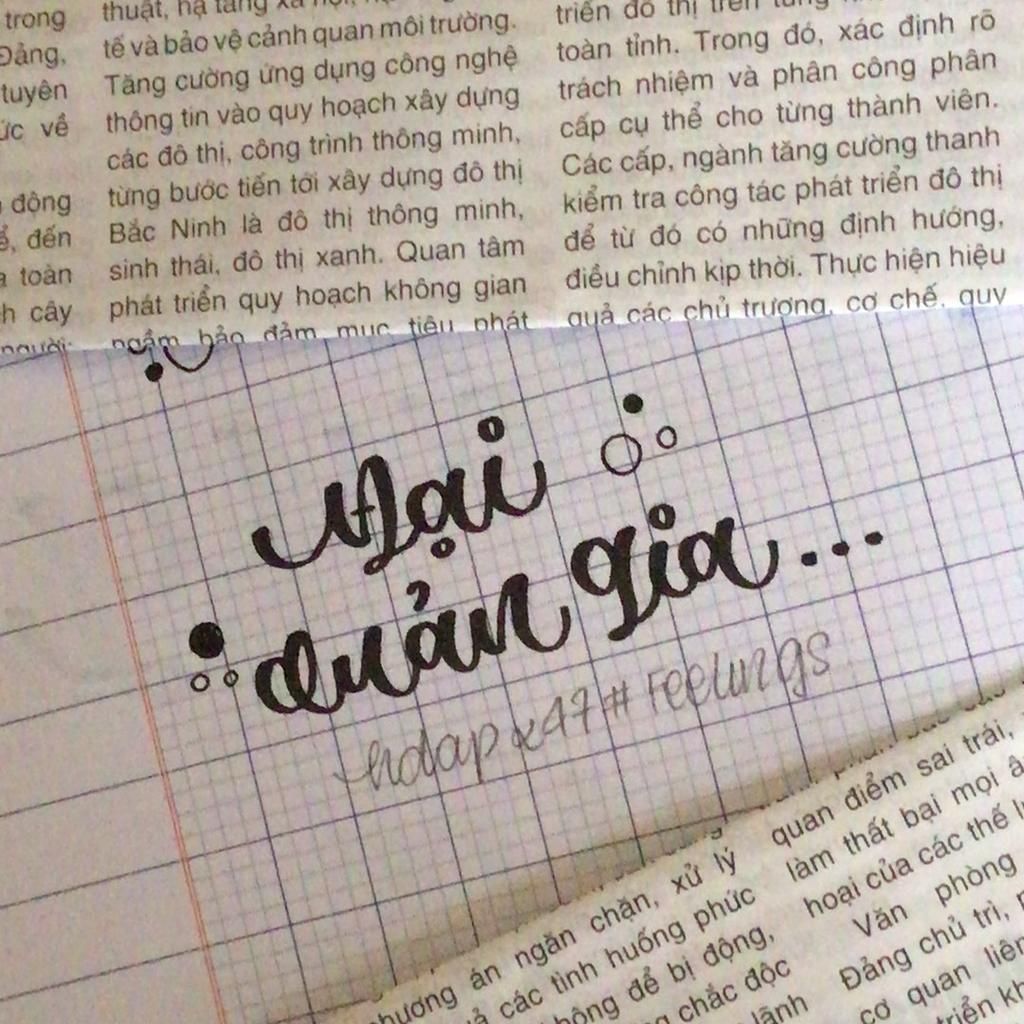 trong
Đảng,
tuyên
ức về
động
ể, đến
a toàn
h cây
người;
thuật, hạ tầng xã
tế và bảo vệ cảnh quan môi trường.
Tăng cường ứng dụng công nghệ
thông tin vào quy hoạch xây dựng
các đô thị, công trình thông minh,
từng bước tiến tới xây dựng đô thị
Bắc Ninh là đô thị thông minh,
sinh thái, đô thị xanh. Quan tâm
phát triển quy hoạch không gian
ngầm bảo đảm mục tiêu phát
triển đô thị trên
toàn tỉnh. Trong đó, xác định rõ
trách nhiệm và phân công phân
cấp cụ thể cho từng thành viên.
Các cấp, ngành tăng cường thanh
kiểm tra công tác phát triển đô thị
để từ đó có những định hướng,
điều chỉnh kịp thời. Thực hiện hiệu
quả các chủ trương, cơ chế, quy
Đại
quản gia...
#feelings
hương án ngăn chặn, xử lý
ả các tình huống phức
hông để bị động,
chắc độc
lãnh
quan điểm sai trái,
làm thất bại mọi â
hoại của các thế l
Văn phòng
Đảng chủ trì, p
cơ quan liên
triển kh